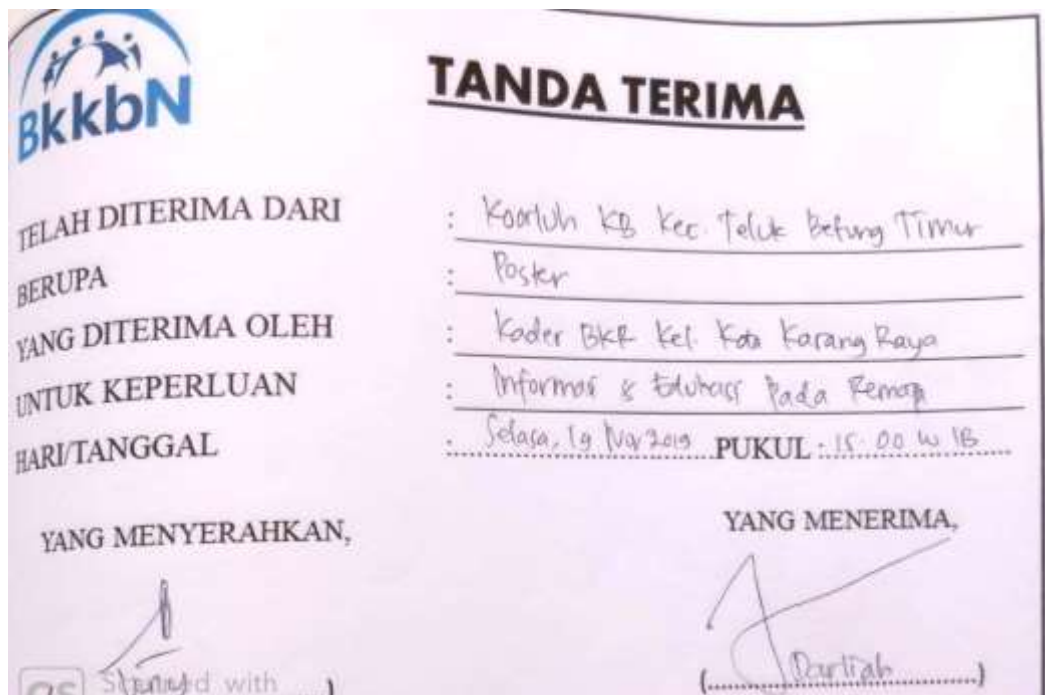 BkkbN
TANDA TERIMA
TELAH DITERIMA DARI : Koorluh KB Kec. Teluk Betung Timur
BERUPA : Poster
YANG DITERIMA OLEH : Kader BKR Kel. Kota Karang Raya
UNTUK KEPERLUAN : Informasi & Edukasi Pada Remaja
HARI/TANGGAL : Selasa, 19 Nov 2019 PUKUL : 15.00 WIB
YANG MENYERAHKAN, YANG MENERIMA,
CS with ) (Darliah)